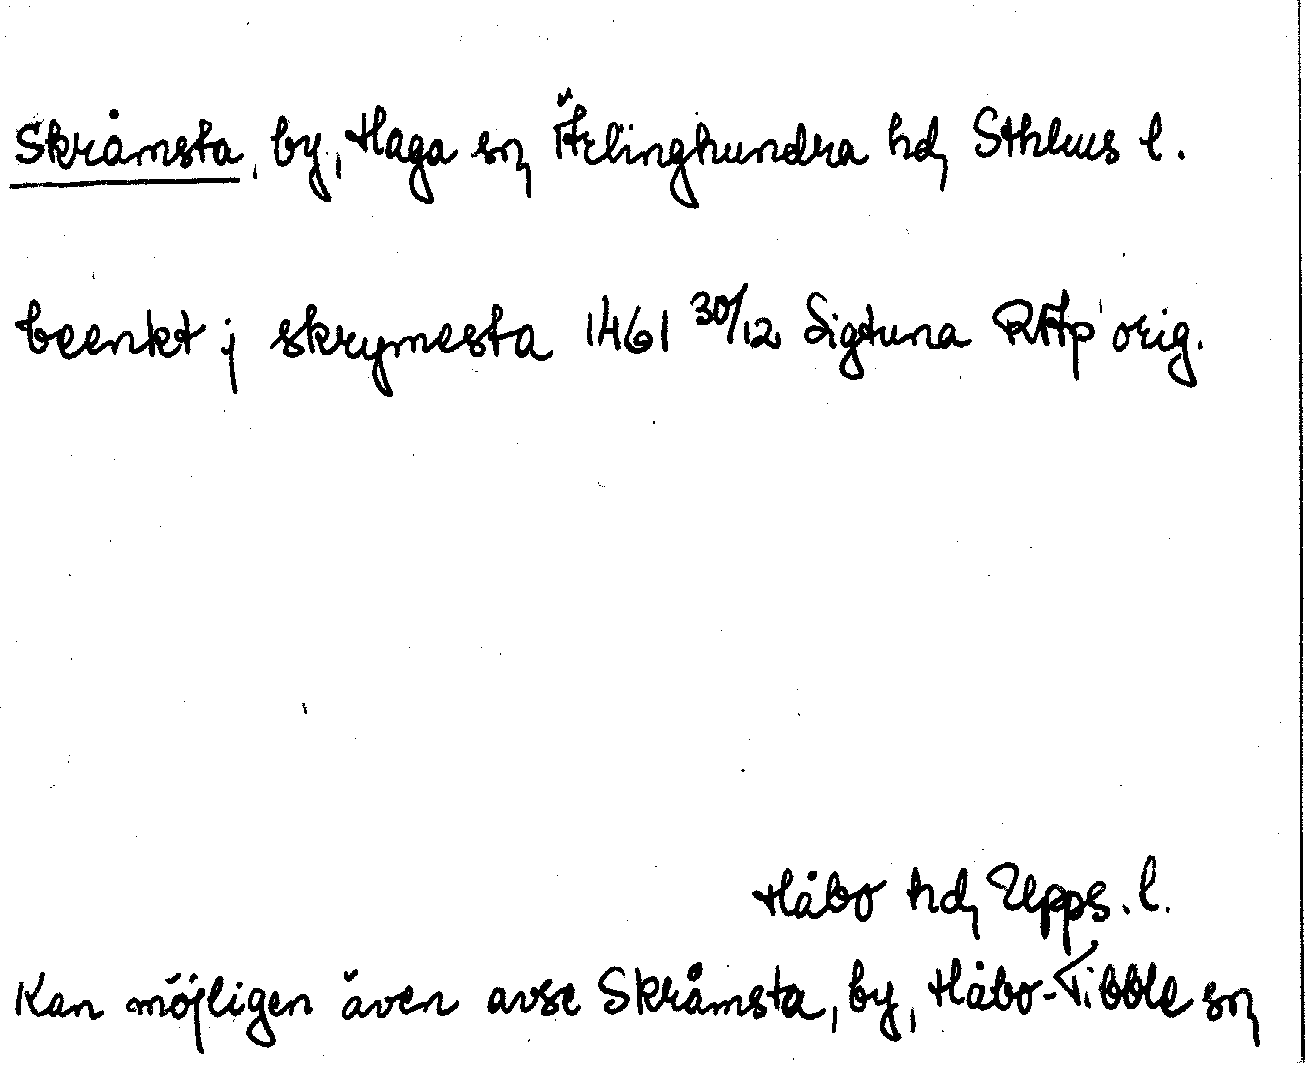 Skråmsta, by, Haga sn, Ärlinghundra hd, Sthlms l.
beenkt j skrymesta 1461 30/12 Sigtuna RAp orig.
Håbo hd, Upps. l.
Kan möjligen även avse Skråmsta, by, Håbo-Tibble sn,